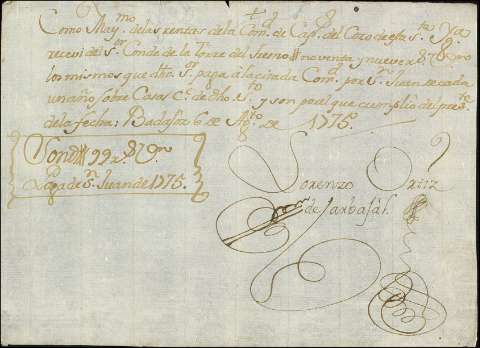 Como May.mo de las rentas de la Com. de Cap.s del Coro de esta S.ta Yg.a
recevi del S.or Conde de la Torre del fresno noventa y nueve r.s 8 m.rs
los mismos que dho S.r paga a la citada Com.n por S.n Juan de cada
un año sobre Casas C.e de dho S.to y son por el que cumplio del pres.te
de la fecha: Badajoz 6 de Ag.to de 1775.
Son 99 r.s 8 m.rs
Paga de S.n Juan de 1775.
Lorenzo Ortiz
de Carbajal.